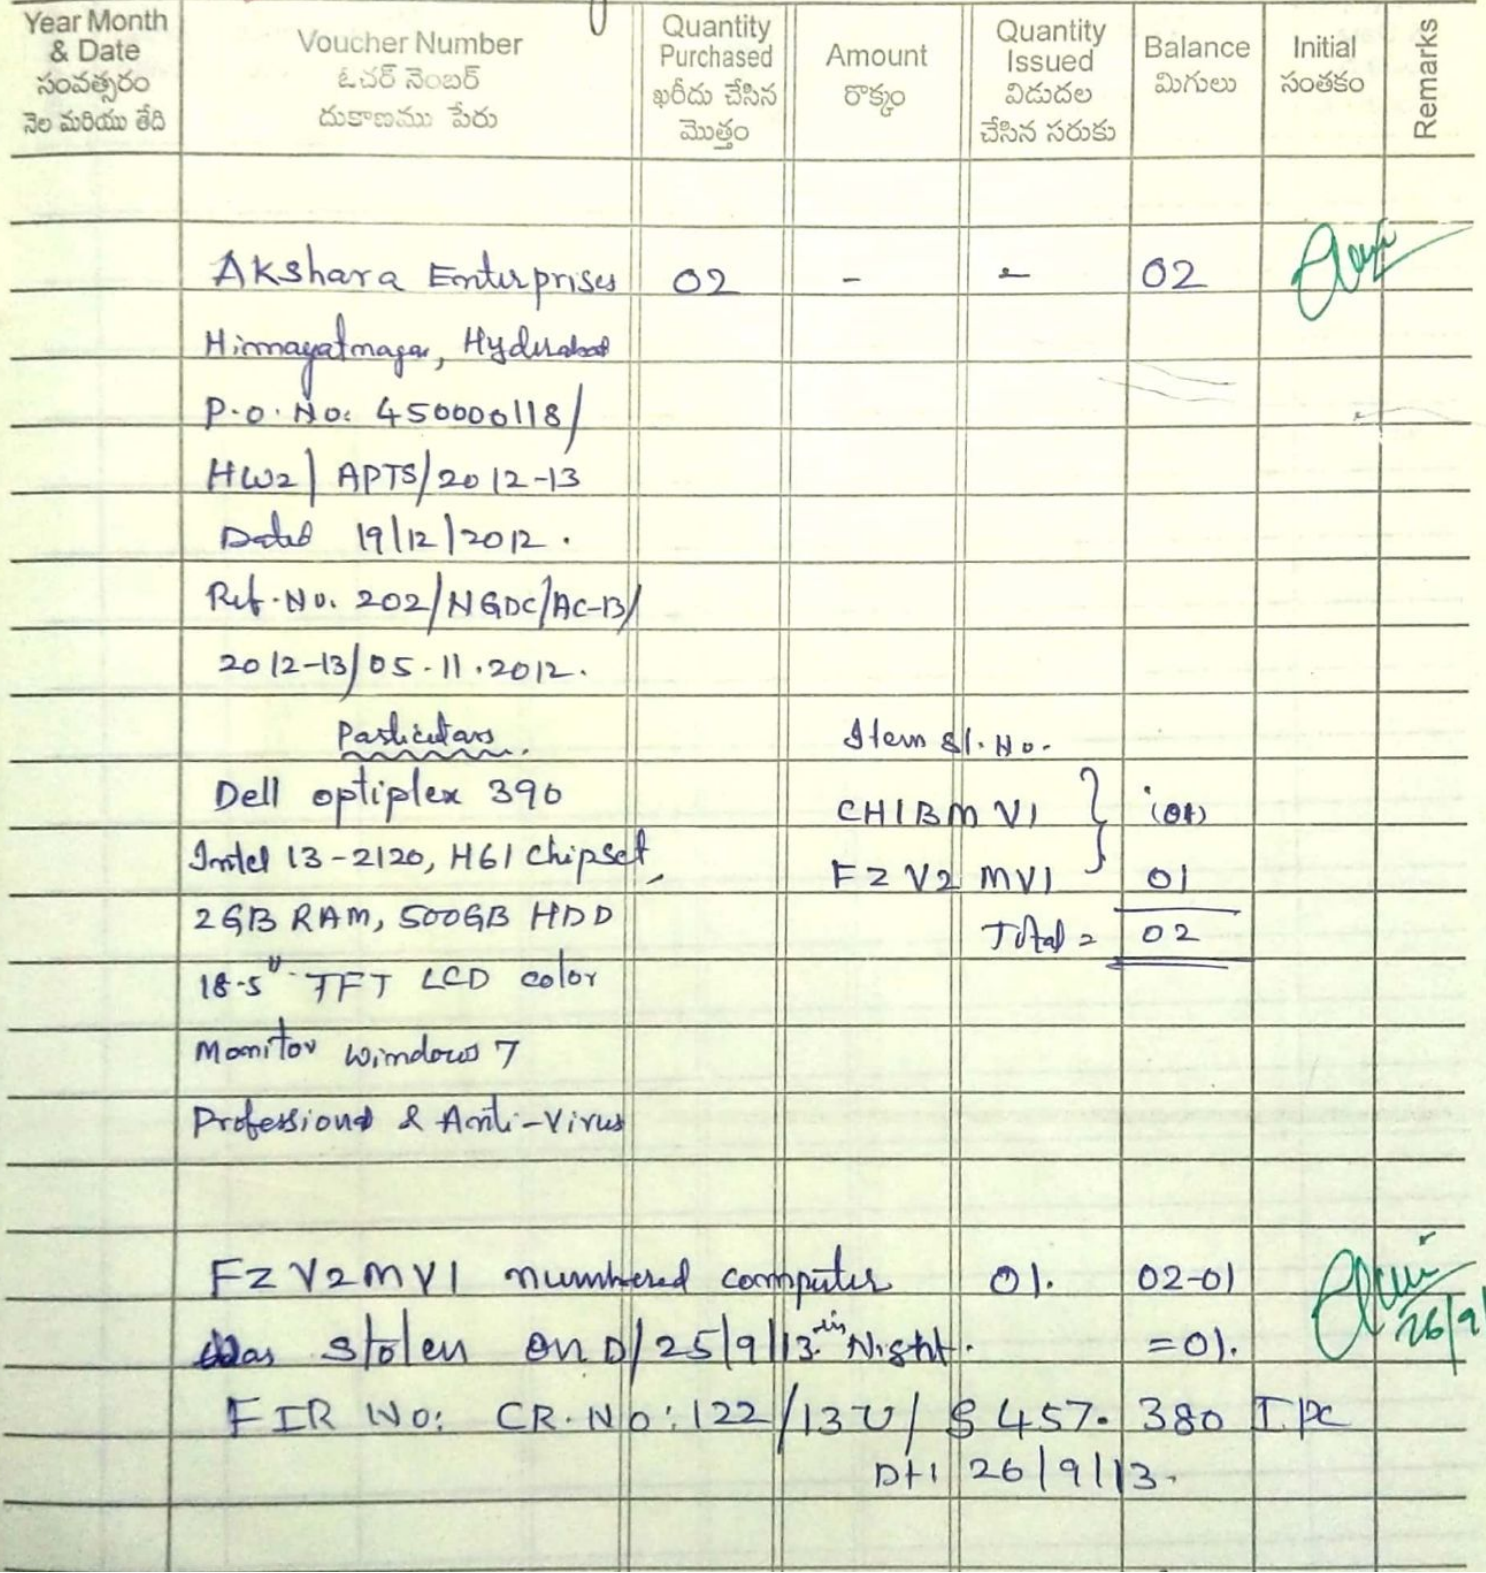 Year Month & Date సంవత్సరం నెల మరియు తేది
Voucher Number ఓచర్ నెంబర్ దుకాణము పేరు
Quantity Purchased ఖరీదు చేసిన మొత్తం
Amount రొక్కం
Quantity Issued విడుదల చేసిన సరుకు
Balance మిగులు
Initial సంతకం
Remarks
Akshara Enterprises 02 - - 02
Himayatnagar, Hyderabad
P.O. No: 450000118/
HW2/ APTS/2012-13
Dated 19/12/2012.
Ref. No. 202/NGDC/AC-13/
2012-13/05.11.2012.
Particulars. Item Sl. No.
Dell optiplex 390 CH1BMV1 (01)
Intel i3-2120, H61 Chipset, FZV2MV1 01
2GB RAM, 500GB HDD Total = 02
18.5" TFT LCD color
Monitor Windows 7
Professional & Anti-Virus
FZV2MV1 numbered computer 01. 02-01
Was stolen on D/25/9/13 in Night. =01. 26/9
FIR No: CR.No: 122/13 U/S 457. 380 IPC
Dt 26/9/13.